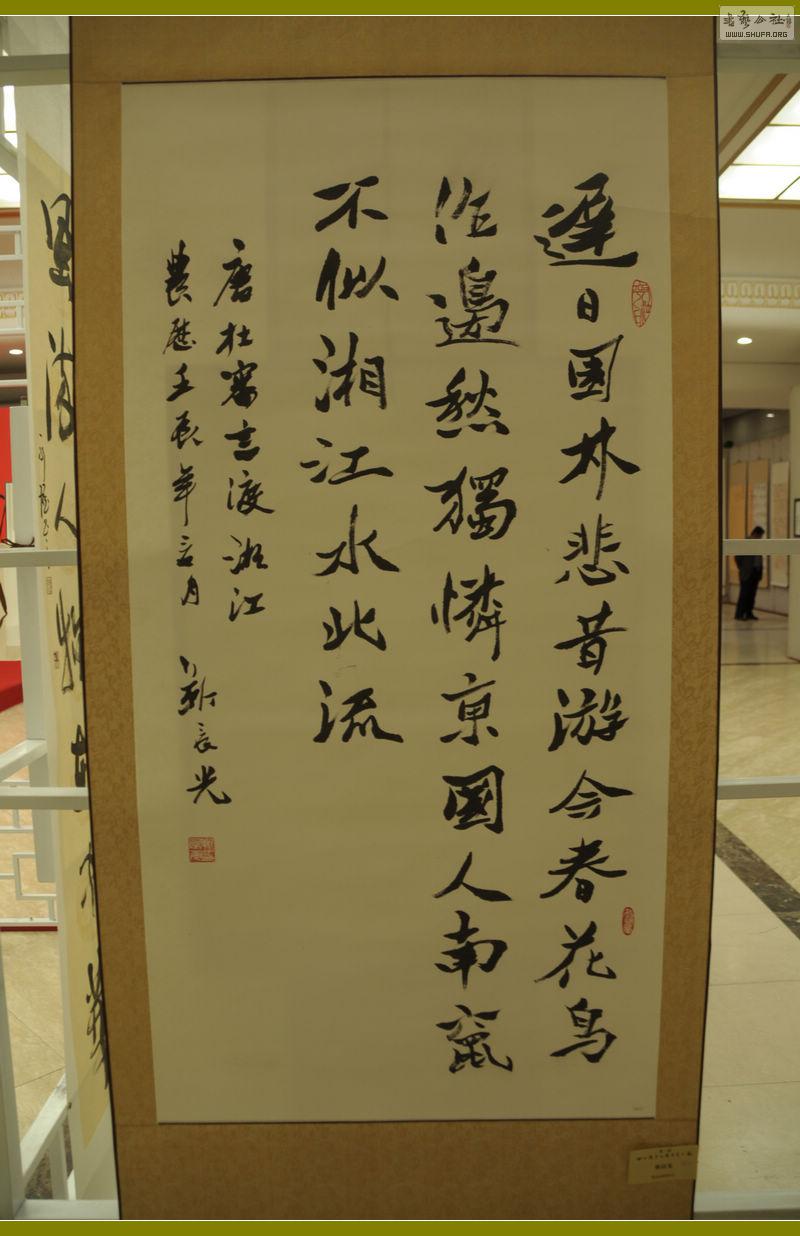 書藝公社
WWW.SHUFA.ORG
遲日園林悲昔游今春花鳥
作邊愁獨憐京國人南竄
不似湘江水北流
唐杜審言渡湘江
農歷壬辰年三月 靳长光
人物